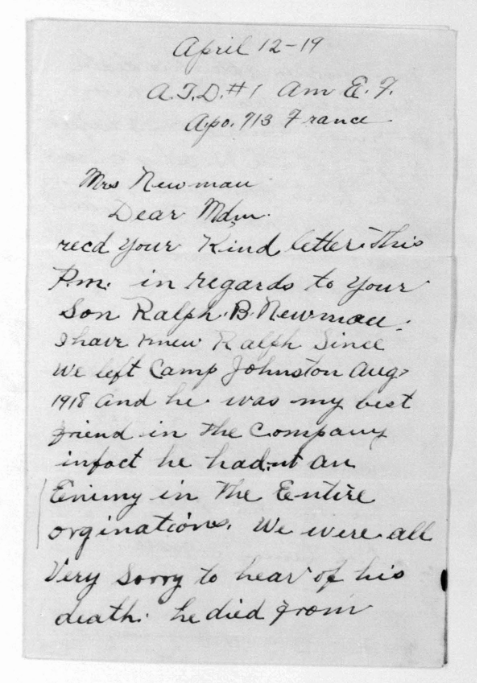 April 12-19
A.T.D.#1 Am E.F.
Apo. 713 France
Mrs Newman
Dear Mdm.
recd your Kind letter This
P.m. in regards to your
Son Ralph B. Newman.
I have knew Ralph Since
we left Camp Johnston Aug
1918 and he was my best
friend in The Company
infact he had-nt an
Enimy in The Entire
orginations. We were all
Very Sorry to hear of his
death. he died from